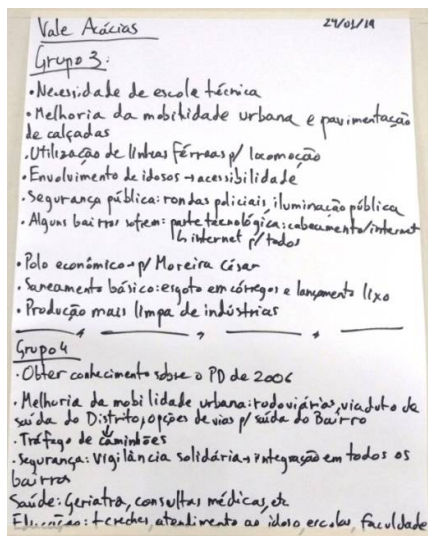 Vale Acácias 29/01/19
Grupo 3:
• Necessidade de escola técnica
• Melhoria da mobilidade urbana e pavimentação
de calçadas
• Utilização de linhas férreas p/ locomoção
• Envolvimento de idosos → acessibilidade
• Segurança pública: rondas policiais, iluminação pública
• Alguns bairros sofrem: parte tecnológica: cabeamento/internet
↳ internet p/ todos
• Polo econômico → p/ Moreira César
• Saneamento básico: esgoto em córregos e lançamento lixo
• Produção mais limpa de indústrias
Grupo 4
• Obter conhecimento sobre o PD de 2006
• Melhoria da mobilidade urbana: rodoviários, viaduto de
saída do Distrito, opções de vias p/ saída do Bairro
• Tráfego de caminhões
• Segurança: vigilância solidária → integração em todos os
bairros
Saúde: Geriatra, consultas médicas, etc
Educação: + creches, atendimento ao idoso, escolas, faculdade